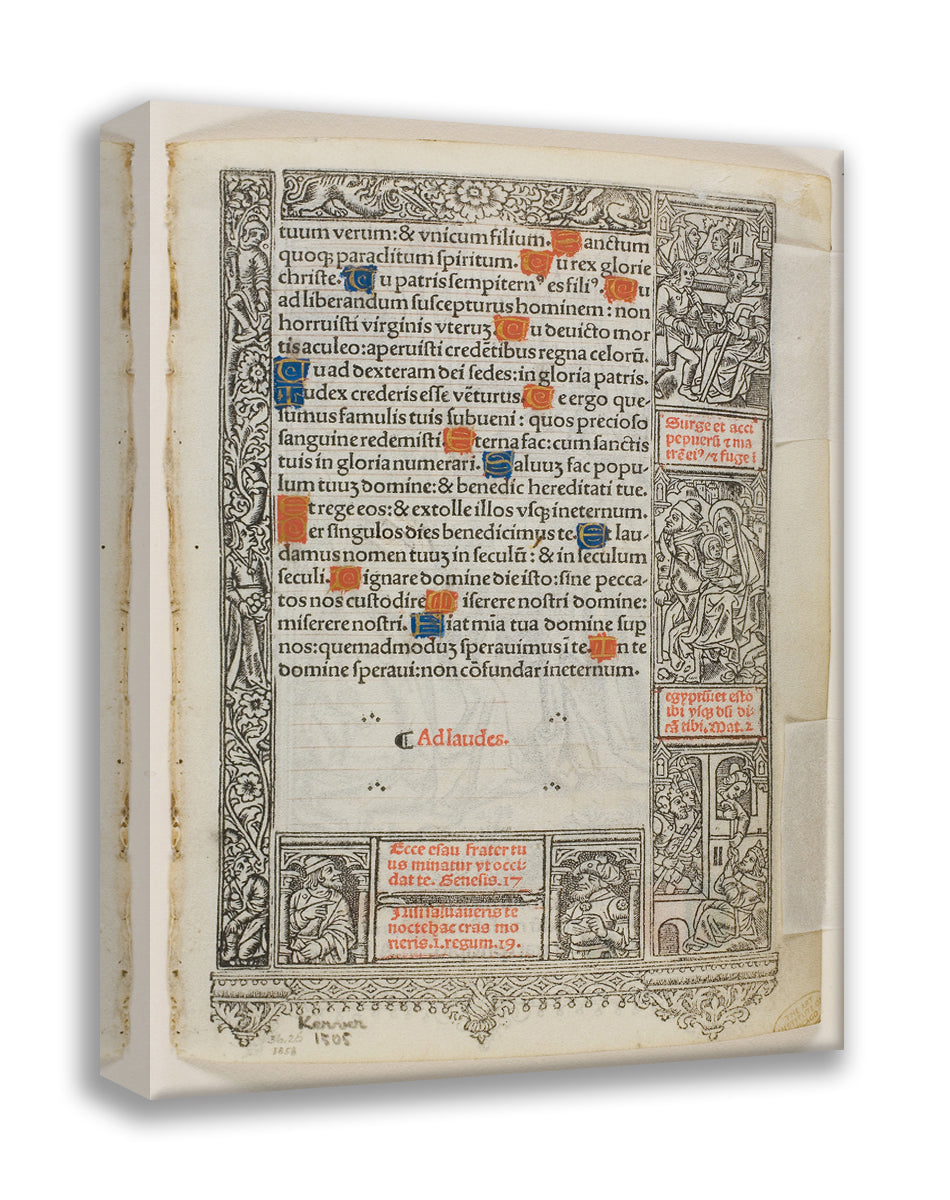 tuum verum: & vnicum filium. Sanctum
quoqꝫ paraclitum spiritum. Tu rex glorie
christe. Tu patris sempiternꝰ es filiꝰ. Tu
ad liberandum suscepturus hominem: non
horruisti virginis vteruꝫ. Tu deuicto mor
tis aculeo: aperuisti credētibus regna celorū.
Tu ad dexteram dei sedes: in gloria patris.
Iudex crederis esse vēturus. Te ergo que-
sumus famulis tuis subueni: quos precioso
sanguine redemisti. Eterna fac: cum sanctis
tuis in gloria numerari. Saluuꝫ fac popu-
lum tuuꝫ domine: & benedic hereditati tue.
Et rege eos: & extolle illos vsqꝫ in eternum.
Per singulos dies benedicimus te. Et lau-
damus nomen tuuꝫ in seculū: & in seculum
seculi. Dignare domine die isto: sine pecca-
tos nos custodire. Miserere nostri domine:
miserere nostri. Fiat mīa tua domine sup
nos: quemadmoduꝫ sperauimus ī te. In te
domine speraui: non cōfundar in eternum.
¶ Ad laudes.
Surge et acci
pe puerū ⁊ ma
trē eiꝰ / ⁊ fuge ī
egyptū: et esto
ibi vsqꝫ dū di-
cā tibi. Mat. 2
Ecce esau frater tu
us minatur vt occi-
dat te. Genesis. 17
Nisi saluaueris te
nocte hac cras mo
rieris. 1. regum. 19.
Kerver
1505